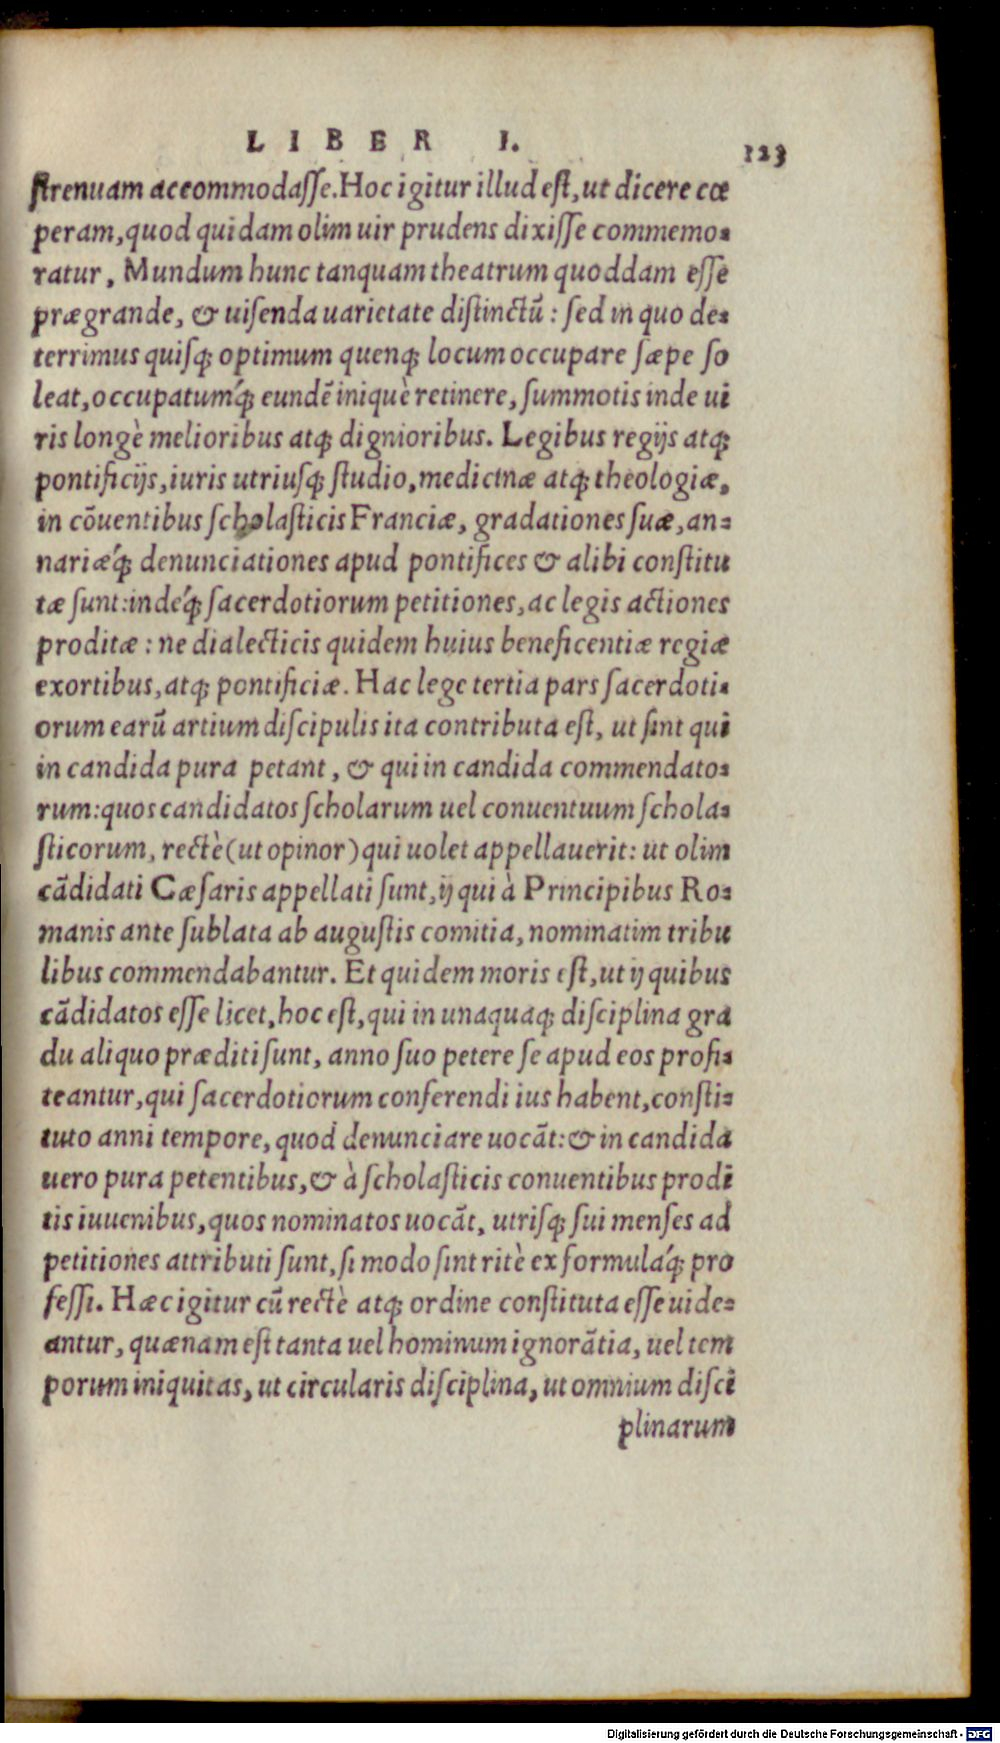 LIBER I. 123
ſtrenuam accommodaſſe. Hoc igitur illud eſt, ut dicere cœ
peram, quod quidam olim uir prudens dixiſſe commemo-
ratur, Mundum hunc tanquam theatrum quoddam eſſe
prægrande, & uiſenda uarietate diſtinctū: ſed in quo de-
terrimus quiſq; optimum quenq; locum occupare ſæpe ſo
leat, occupatumq́; eundē iniquè retinere, ſummotis inde ui
ris longè melioribus atq; dignioribus. Legibus regijs atq;
pontificijs, iuris utriuſq; ſtudio, medicinæ atq; theologiæ,
in cōuentibus ſcholaſticis Franciæ, gradationes ſuæ, an-
nariæq́; denunciationes apud pontifices & alibi conſtitu
tæ ſunt: indeq́; ſacerdotiorum petitiones, ac legis actiones
proditæ: ne dialecticis quidem huius beneficentiæ regiæ
exortibus, atq; pontificiæ. Hac lege tertia pars ſacerdoti-
orum earū artium diſcipulis ita contributa eſt, ut ſint qui
in candida pura petant, & qui in candida commendato-
rum: quos candidatos ſcholarum uel conuentuum ſchola-
ſticorum, rectè (ut opinor) qui uolet appellauerit: ut olim
cādidati Cæſaris appellati ſunt, ij qui à Principibus Ro-
manis ante ſublata ab auguſtis comitia, nominatim tribu
libus commendabantur. Et quidem moris eſt, ut ij quibus
cādidatos eſſe licet, hoc eſt, qui in unaquaq; diſciplina gra
du aliquo præditi ſunt, anno ſuo petere ſe apud eos profi-
teantur, qui ſacerdotiorum conferendi ius habent, conſti-
tuto anni tempore, quod denunciare uocāt: & in candida
uero pura petentibus, & à ſcholaſticis conuentibus prodi
tis iuuenibus, quos nominatos uocāt, utriſq; ſui menſes ad
petitiones attributi ſunt, ſi modo ſint ritè ex formulaq́; pro
feſſi. Hæc igitur cū rectè atq; ordine conſtituta eſſe uide-
antur, quænam eſt tanta uel hominum ignorātia, uel tem
porum iniquitas, ut circularis diſciplina, ut omnium diſci
plinarum
Digitalisierung gefördert durch die Deutsche Forschungsgemeinschaft - DFG